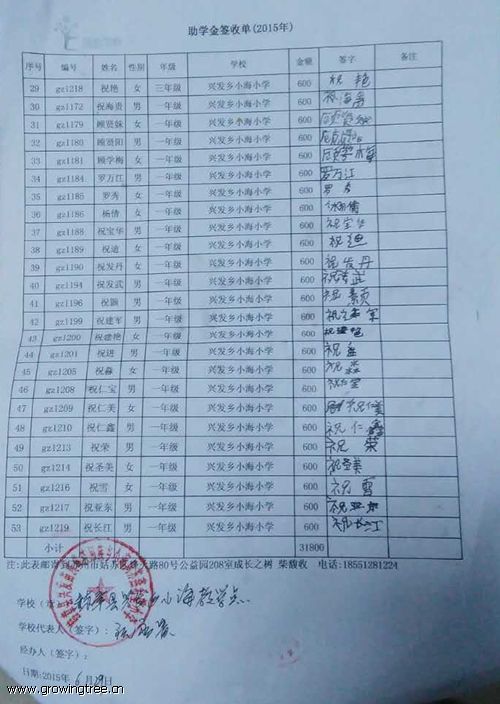 助学金签收单(2015年)
序号 编号 姓名 性别 年级 学校 金额 签字 备注
29 gz1218 祝艳 女 三年级 兴发乡小海小学 600 祝艳
30 gz1172 祝海贵 男 一年级 兴发乡小海小学 600 祝海贵
31 gz1179 顾贤妹 女 一年级 兴发乡小海小学 600
32 gz1180 顾贤阳 男 一年级 兴发乡小海小学 600
33 gz1181 顾学梅 女 一年级 兴发乡小海小学 600
34 gz1184 罗万江 男 一年级 兴发乡小海小学 600 罗万江
35 gz1185 罗秀 女 一年级 兴发乡小海小学 600 罗秀
36 gz1186 杨倩 女 一年级 兴发乡小海小学 600 杨倩
37 gz1188 祝宝华 男 一年级 兴发乡小海小学 600 祝宝华
38 gz1189 祝迪 女 一年级 兴发乡小海小学 600 祝迪
39 gz1190 祝发丹 女 一年级 兴发乡小海小学 600 祝发丹
40 gz1194 祝发武 男 一年级 兴发乡小海小学 600
41 gz1196 祝颢 男 一年级 兴发乡小海小学 600
42 gz1199 祝建军 男 一年级 兴发乡小海小学 600
43 gz1200 祝建艳 女 一年级 兴发乡小海小学 600 祝建艳
44 gz1201 祝进 男 一年级 兴发乡小海小学 600
45 gz1205 祝淼 女 一年级 兴发乡小海小学 600 祝淼
46 gz1208 祝仁宝 男 一年级 兴发乡小海小学 600
47 gz1209 祝仁美 女 一年级 兴发乡小海小学 600 祝仁美
48 gz1210 祝仁鑫 男 一年级 兴发乡小海小学 600 祝仁鑫
49 gz1213 祝荣 男 一年级 兴发乡小海小学 600 祝荣
50 gz1214 祝圣美 女 一年级 兴发乡小海小学 600 祝圣美
51 gz1216 祝雪 女 一年级 兴发乡小海小学 600 祝雪
52 gz1217 祝亚东 男 一年级 兴发乡小海小学 600 祝亚东
53 gz1219 祝长江 男 一年级 兴发乡小海小学 600 祝长江
小计 31800
注:此表邮寄到 州市姑苏区 大路80号公益园208室成长之树 柴馥收 电话:18551281224
学校 小海教学点
学校代表人(签字):
经办人(签字):
日期:2015年6月29日
www.growingtree.cn